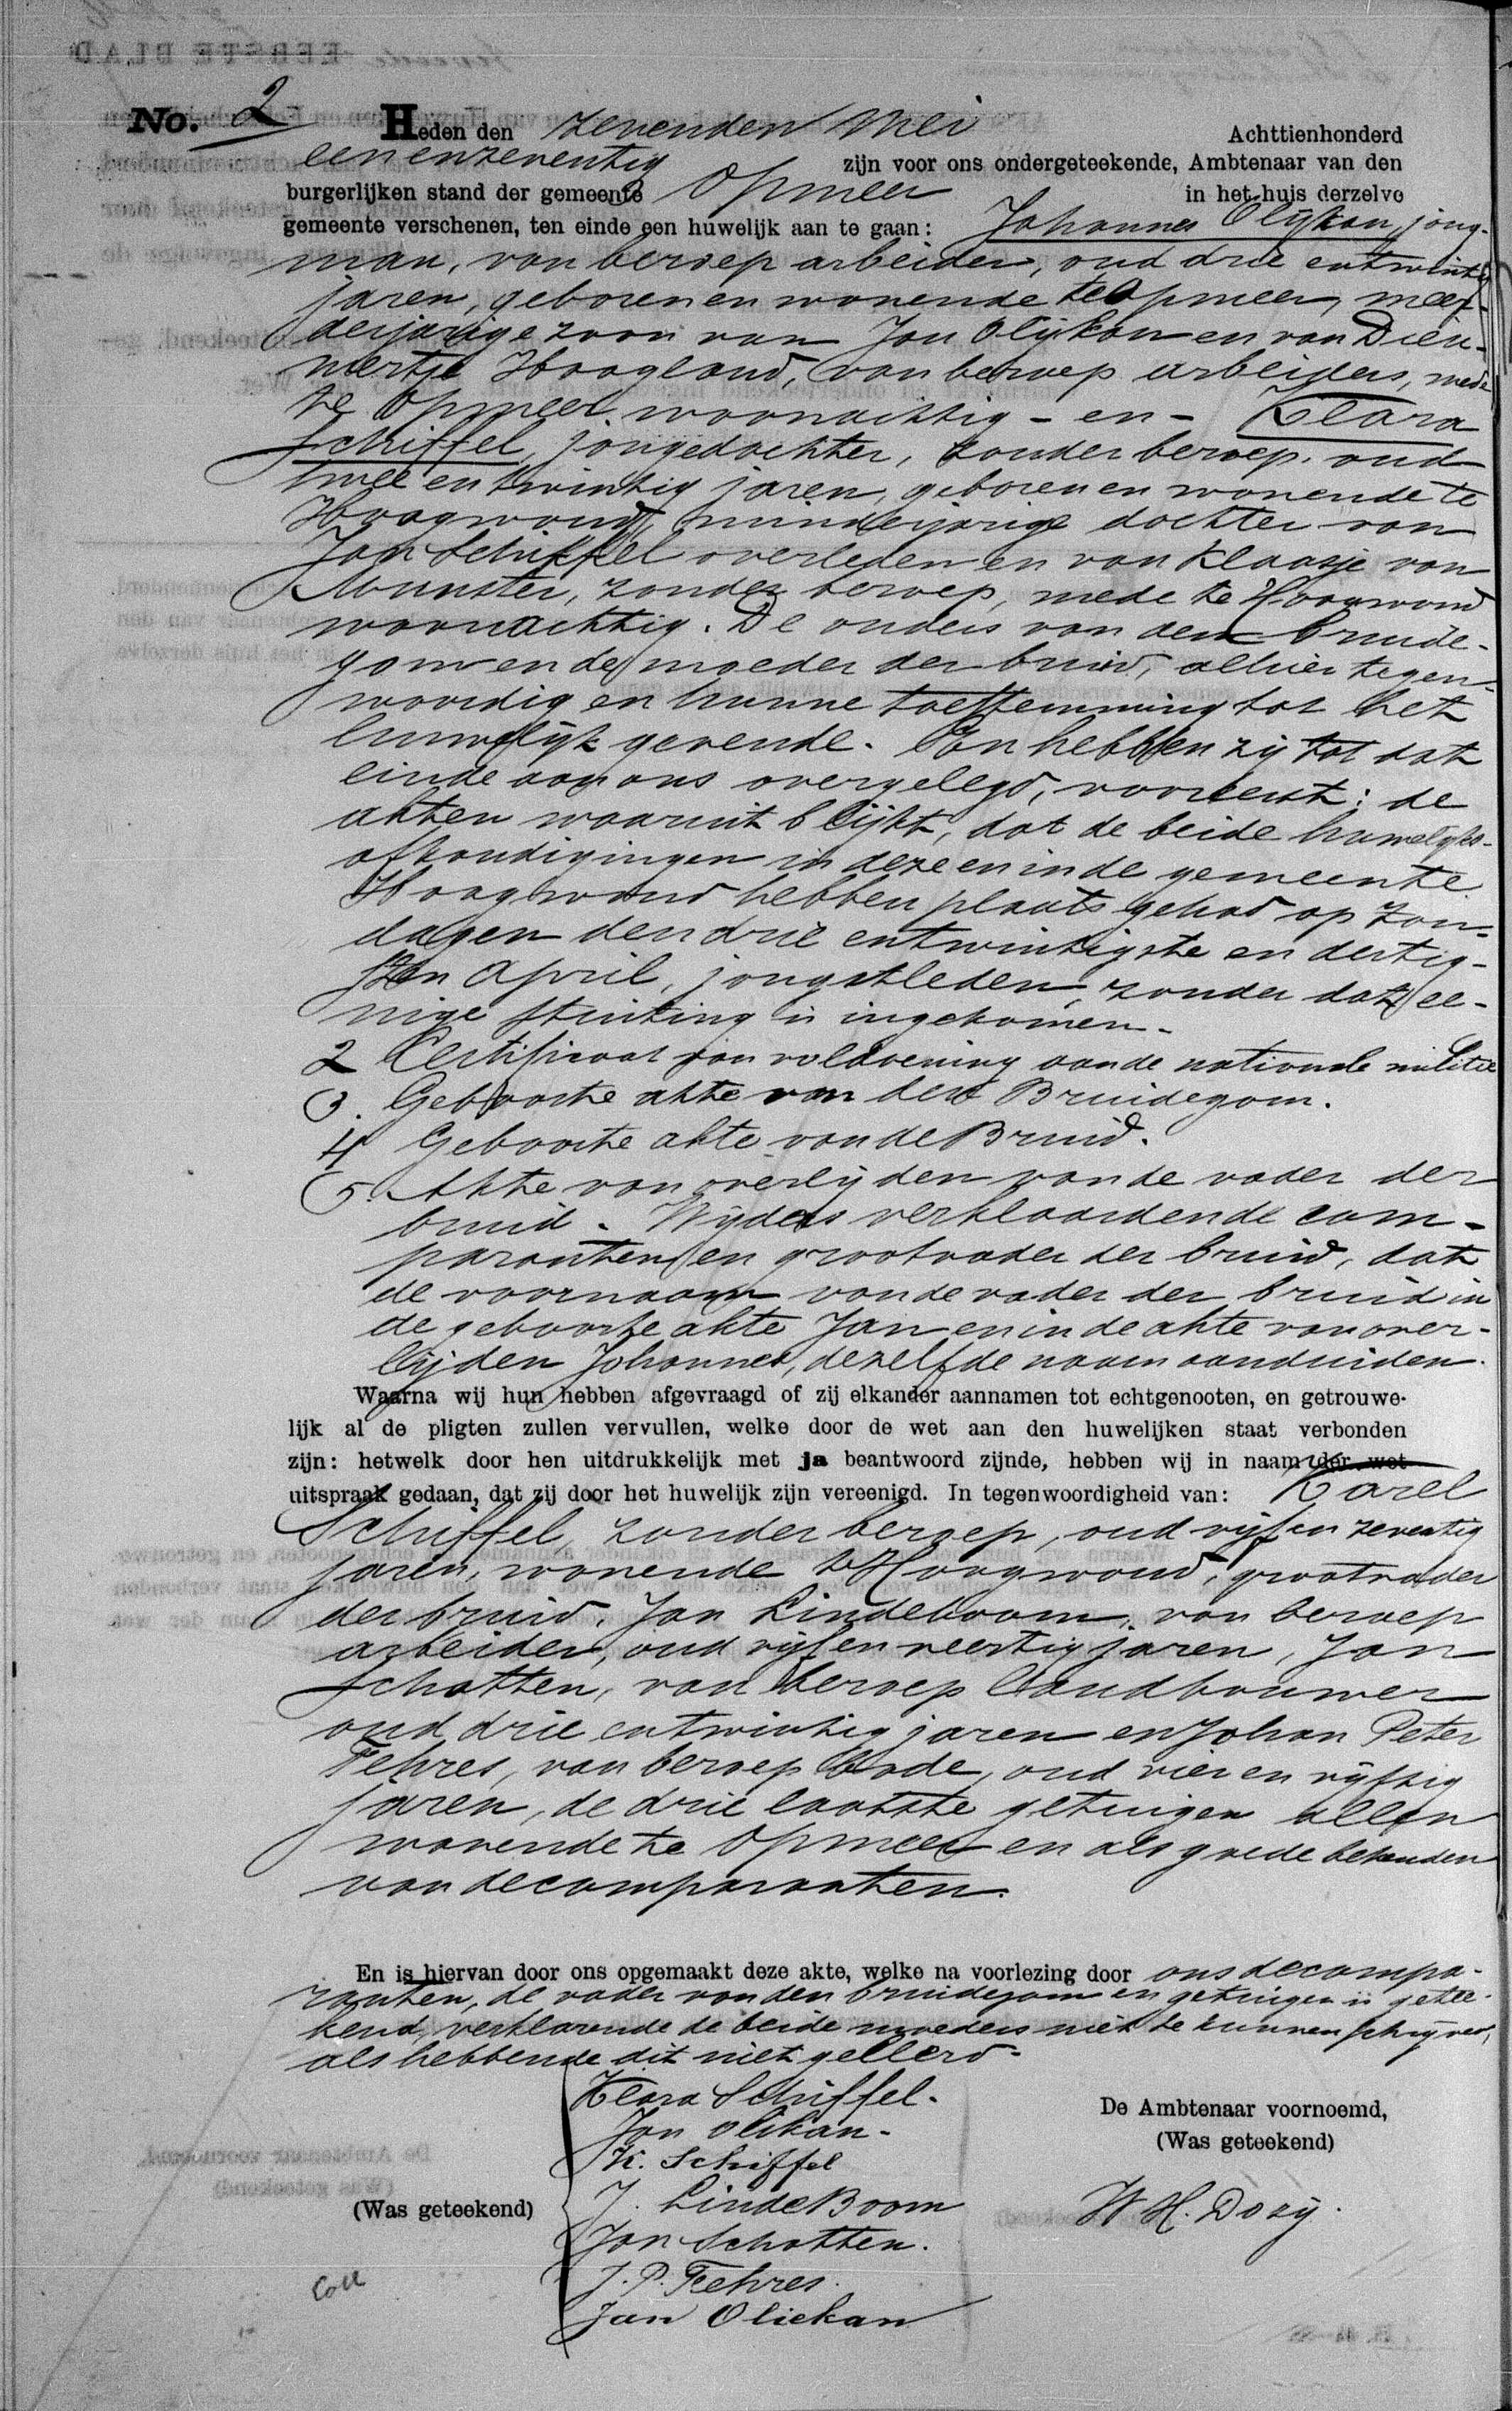 No. 2 Heden den zevenden Mei Achttienhonderd
eenenzeventig zijn voor ons ondergeteekende, Ambtenaar van den
burgerlijken stand der gemeente Opmeer in het huis derzelve
gemeente verschenen, ten einde een huwelijk aan te gaan: Johannes Olijkan, jong-
man, van beroep arbeider, oud drie entwintig
jaren, geboren en wonende te Opmeer, meer-
derjarige zoon van Jan Olijkan en van Dieu-
wertje Hoogland, van beroep arbeiders, mede
te Opmeer woonachtig - en - Klara
Schiffel, jongedochter, zonder beroep, oud
twee entwintig jaren, geboren en wonende te
Hoogwoud, minderjarige dochter van
Jan Schiffel overleden en van Klaasje van
Munster, zonder beroep, mede te Hoogwoud
woonachtig. De ouders van den bruide-
gom en de moeder der bruid, alhier tegen-
woordig en hunne toestemming tot het
huwelijk gevende. En hebben zij tot dat
einde aan ons overgelegd, vooreerst: de
akten waaruit blijkt, dat de beide huwelijks-
afkondigingen in deze en in de gemeente
Hoogwoud hebben plaats gehad op Zon-
dagen den drie entwintigste en dertig-
sten April, jongstleden, zonder dat ee-
nige stuiting is ingekomen.
2 Certificaat van voldoening aan de nationale militie
3. Geboorte akte van den Bruidegom.
4 Geboorte akte van de Bruid.
5 Akte van overlijden van de vader der
bruid. Wijders verklaarden de com-
paranten en grootvader der bruid, dat
de voornaam van de vader der bruid in
de geboorte akte Jan en in de akte van over-
lijden Johannes, dezelfde naam aanduiden.
Waarna wij hun hebben afgevraagd of zij elkander aannamen tot echtgenooten, en getrouwe-
lijk al de pligten zullen vervullen, welke door de wet aan den huwelijken staat verbonden
zijn: hetwelk door hen uitdrukkelijk met ja beantwoord zijnde, hebben wij in naam der wet
uitspraak gedaan, dat zij door het huwelijk zijn vereenigd. In tegenwoordigheid van: Karel
Schiffel, zonder beroep, oud vijf en zeventig
jaren, wonende te Hoogwoud, grootvader
der bruid, Jan Lindeboom, van beroep
arbeider, oud vijf en veertig jaren, Jan
Schotten, van beroep landbouwer
oud drie entwintig jaren en Johan Peter
Fehres, van beroep bode, oud vier en vijftig
jaren, de drie laatste getuigen allen
wonende te Opmeer en als goede bekenden
van de comparanten.
En is hiervan door ons opgemaakt deze akte, welke na voorlezing door ons de compa-
ranten, de vader van den bruidegom en getuigen is getee-
kend, verklarende de beide moeders niet te kunnen schrijven,
als hebbende dit niet geleerd.
Klara Schiffel.
Jan Olikan.
K. Schiffel
J. LindeBoom
Jan Schotten.
J. P. Fehres.
Jan Oliekan
(Was geteekend)
De Ambtenaar voornoemd,
(Was geteekend)
W H. Dozy.
Coll